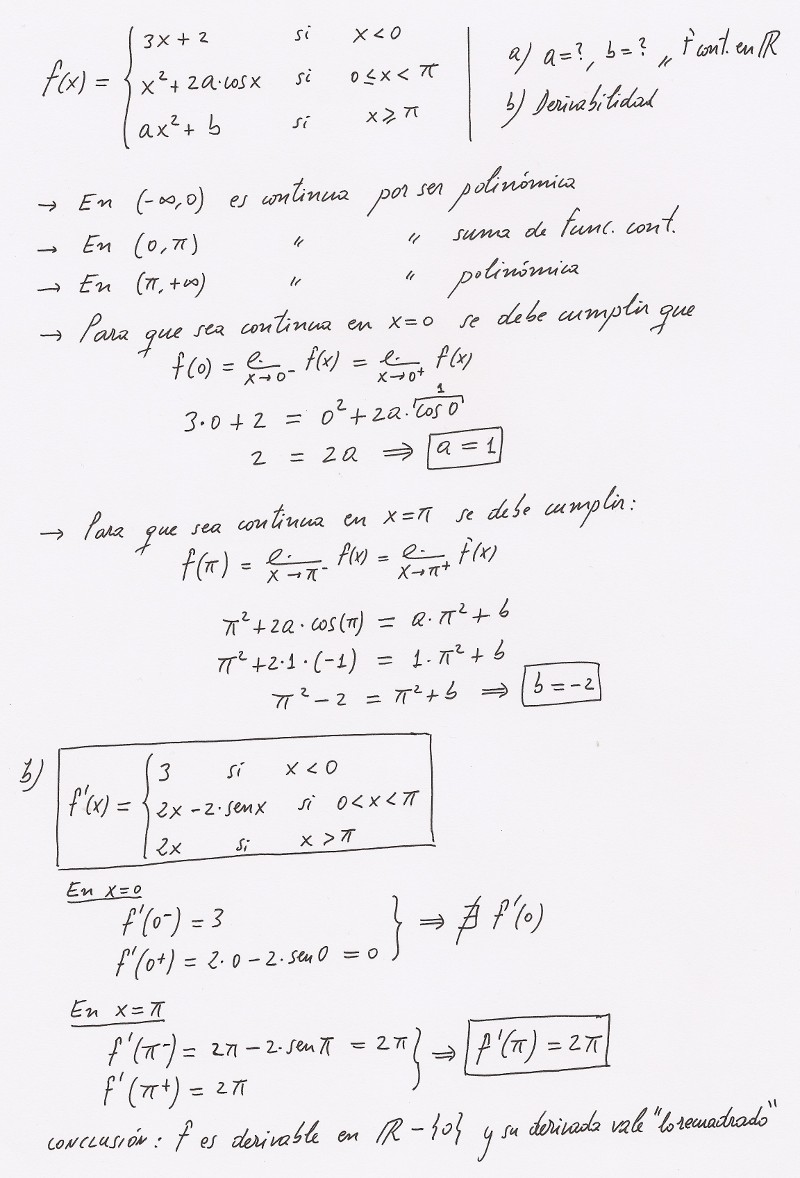 f(x) = { 3x + 2 si x < 0
x² + 2a·cosx si 0 ≤ x < π
ax² + b si x ⩾ π
a) a=?, b=? ,, f cont. en ℝ
b) Derivabilidad
→ En (-∞,0) es continua por ser polinómica
→ En (0,π) " " suma de func. cont.
→ En (π,+∞) " " polinómica
→ Para que sea continua en x=0 se debe cumplir que
f(0) = ℓ. x→0⁻ f(x) = ℓ. x→0⁺ f(x)
3·0 + 2 = 0² + 2a·cos 0 1
2 = 2a ⇒ a = 1
→ Para que sea continua en x=π se debe cumplir:
f(π) = ℓ. x→π⁻ f(x) = ℓ. x→π⁺ f(x)
π² + 2a·cos(π) = a·π² + b
π² + 2·1·(-1) = 1·π² + b
π² - 2 = π² + b ⇒ b = -2
b) f'(x) = { 3 si x < 0
2x - 2·senx si 0 < x < π
2x si x > π
En x=0
f'(0⁻) = 3
f'(0⁺) = 2·0 - 2·sen0 = 0 } ⇒ ∄ f'(0)
En x=π
f'(π⁻) = 2π - 2·senπ = 2π
f'(π⁺) = 2π } ⇒ f'(π) = 2π
CONCLUSIÓN: f es derivable en ℝ - {0} y su derivada vale "lo recuadrado"